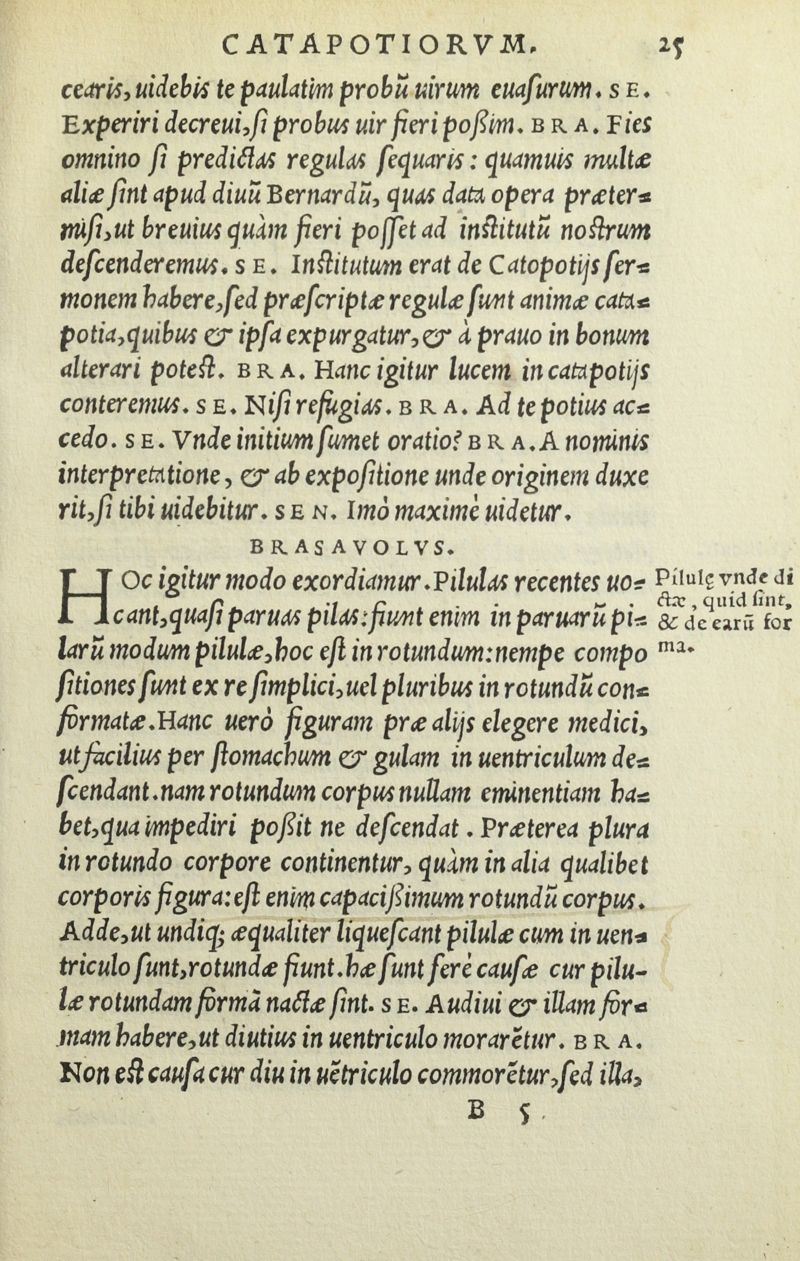 CATAPOTIORVM. 25
cearis, uidebis te paulatim probū uirum euasurum. S E.
Experiri decreui, si probus uir fieri poßim. B R A. Fies
omnino si predictas regulas sequaris: quamuis multæ
aliæ sint apud diuū Bernardū, quas data opera præter-
misi, ut breuius quàm fieri posset ad institutū nostrum
descenderemus. S E. Institutum erat de Catopotijs ser-
monem habere, sed præscriptæ regulæ sunt animæ cata-
potia, quibus & ipsa expurgatur, & à prauo in bonum
alterari potest. B R A. Hanc igitur lucem in catapotijs
conteremus. S E. Nisi refugias. B R A. Ad te potius ac-
cedo. S E. Vnde initium sumet oratio? B R A. A nominis
interpretatione, & ab expositione unde originem duxe
rit, si tibi uidebitur. S E N. Imò maximè uidetur.
BRASAVOLVS.
HOc igitur modo exordiamur. Pilulas recentes uo-
cant, quasi paruas pilas: fiunt enim in paruarū pi-
larū modum pilulæ, hoc est in rotundum: nempe compo
sitiones sunt ex re simplici, uel pluribus in rotundū con-
formatæ. Hanc uerò figuram præ alijs elegere medici,
ut facilius per stomachum & gulam in uentriculum de-
scendant. nam rotundum corpus nullam eminentiam ha-
bet, qua impediri poßit ne descendat. Præterea plura
in rotundo corpore continentur, quàm in alia qualibet
corporis figura: est enim capacißimum rotundū corpus.
Adde, ut undiq; æqualiter liquescant pilulæ cum in uen-
triculo sunt, rotundæ fiunt. hæ sunt ferè causæ cur pilu-
læ rotundam formā nactæ sint. S E. Audiui & illam for-
mam habere, ut diutius in uentriculo morarētur. B R A.
Non est causa cur diu in uētriculo commorētur, sed illa,
B 5.
Pilulę vnde di
ctæ, quid sint,
& de earū for
ma.